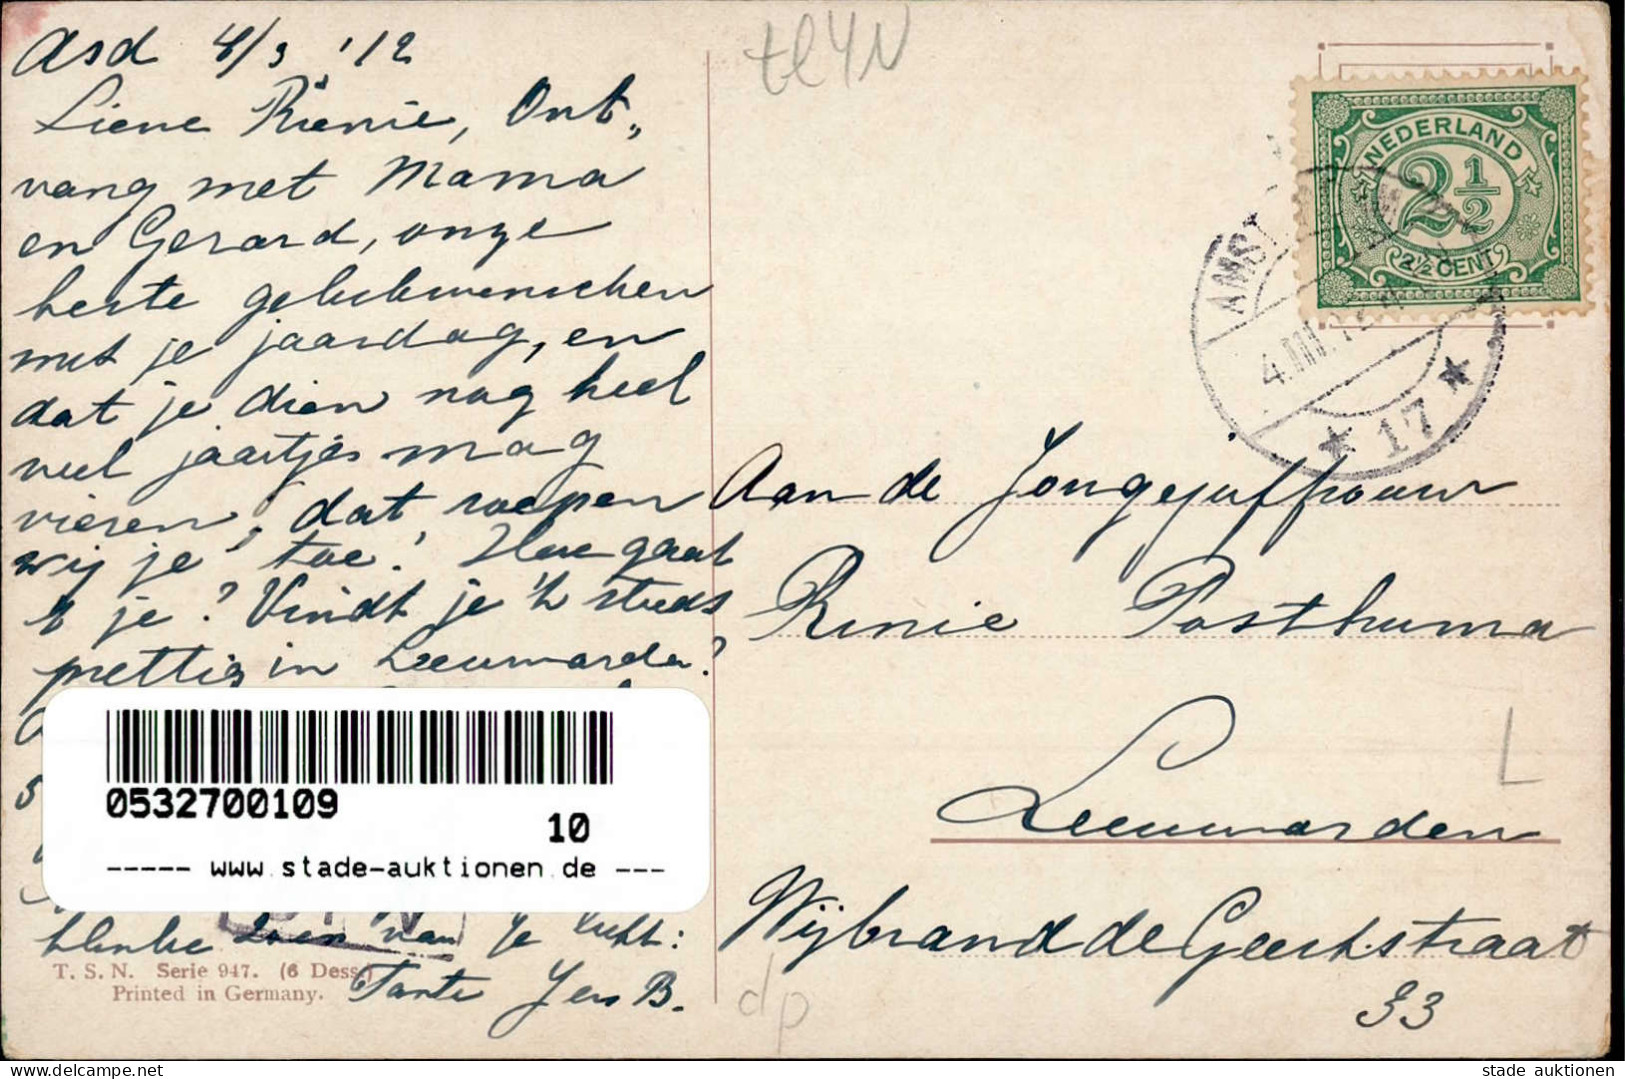 Asd 4/3 '12
Lieve Rienie, Ont-
vang met Mama
en Gerard, onze
beste gelukwenschen
met je jaardag, en
dat je dien nog heel
veel jaartjes mag
vieren, dat roepen
wij je toe! Hoe gaat
't je? Vindt je 't steeds
prettig in Leeuwarden?
klinke zoen van je
Tante B.
T. S. N. Serie 947. (6 Dess.)
Printed in Germany.
0532700109
10
----- www.stade-auktionen.de ---
NEDERLAND
2½
2½ CENT
AMST
4.III.12
17
Aan de Jongejuffrouw
Rinie Posthuma
Leeuwarden
Wijbrand de Geeststraat
33
L
dp
delcampe.net
stade auktionen